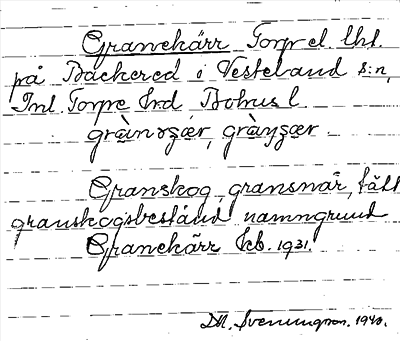 Granekärr Torp el. lht.
på Backered i Vesteland s:n,
Inl. Torpe hrd Bohus l.
gràn⁠ɔʒæ̀r, gràŋʒær
Granskog, gransnår, tätt
granskogsbestånd namngrund
Granekärr Jeb. 1931.
D.A. Svenungson. 1940.